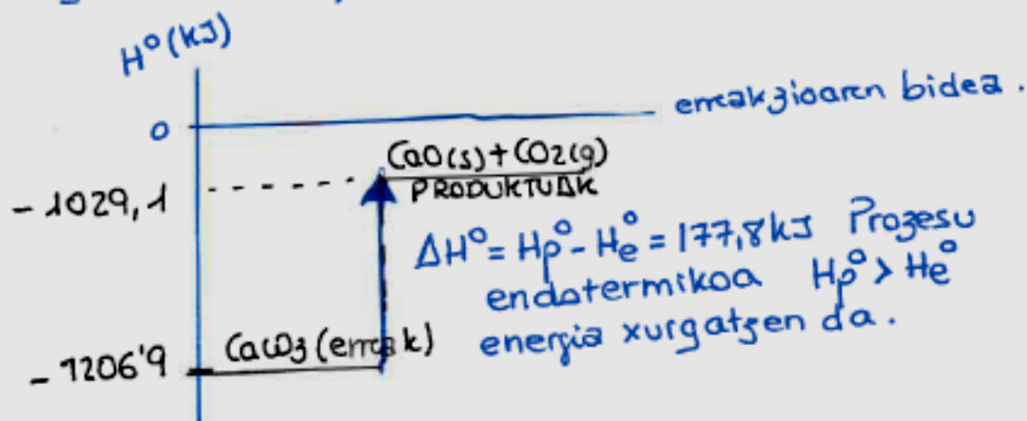 H°(kJ)
erreakzioaren bidea.
0
CaO(s)+CO2(g)
PRODUKTUAK
-1029,1
ΔH°= Hp°- He° = 177,8kJ Prozesu
endotermikoa Hp° > He°
energia xurgatzen da.
CaCO3 (erreak)
-1206'9